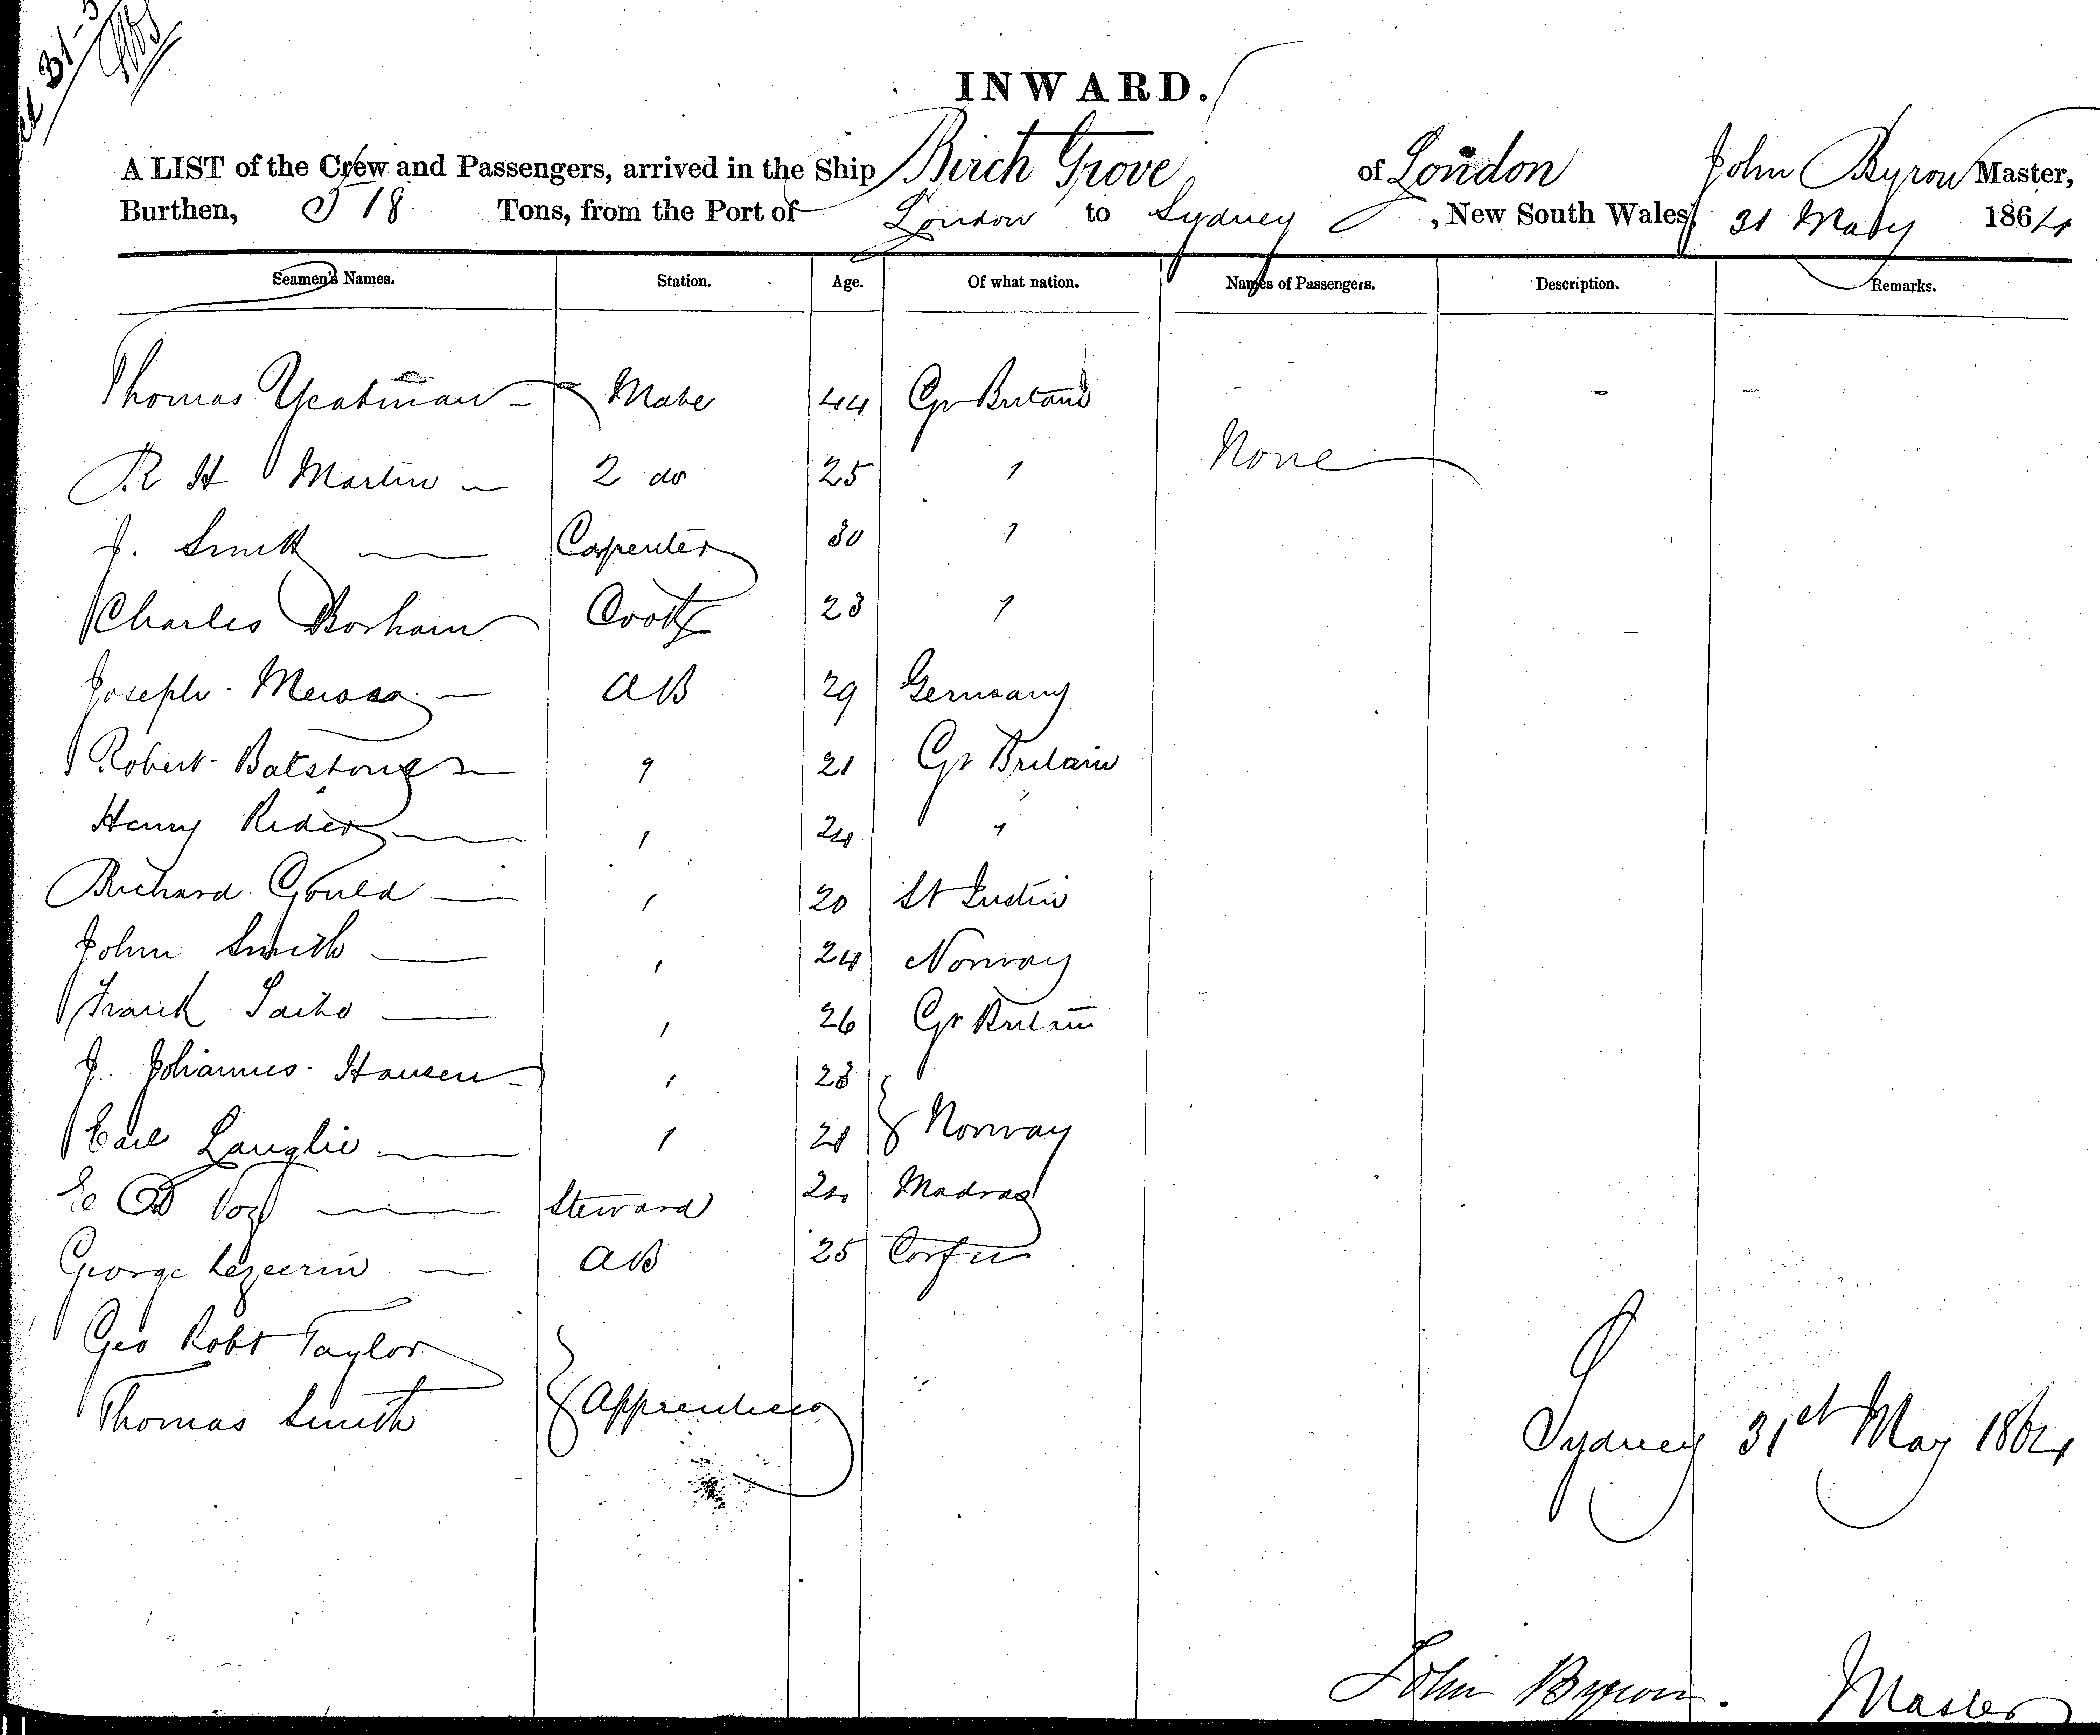 31
INWARD.
A LIST of the Crew and Passengers, arrived in the Ship Birch Grove of London John Byron Master,
Burthen, 518 Tons, from the Port of London to Sydney , New South Wales, 31 May 1864
Seamen's Names. Station. Age. Of what nation. Names of Passengers. Description. Remarks.
Thomas Yeatman Mate 44 Gr Britain
None
R H Martin 2 do 25 "
J. Smith Carpenter 30 "
Charles Borham Cook 23 "
Joseph AB 29 Germany
Robert Batstone " 21 Gr Britain
Henry Rider " 24 "
Richard Gould " 20 St
John Smith " 24 Norway
Frank " 26 Gr Britain
J. Johannes Hansen " 23
Carl Langlie " 21 } Norway
Steward Madras
George AB 25 Corfu
Geo Robt Taylor
Thomas Smith } Apprentices
Sydney 31st May 1864
John Byron. Master